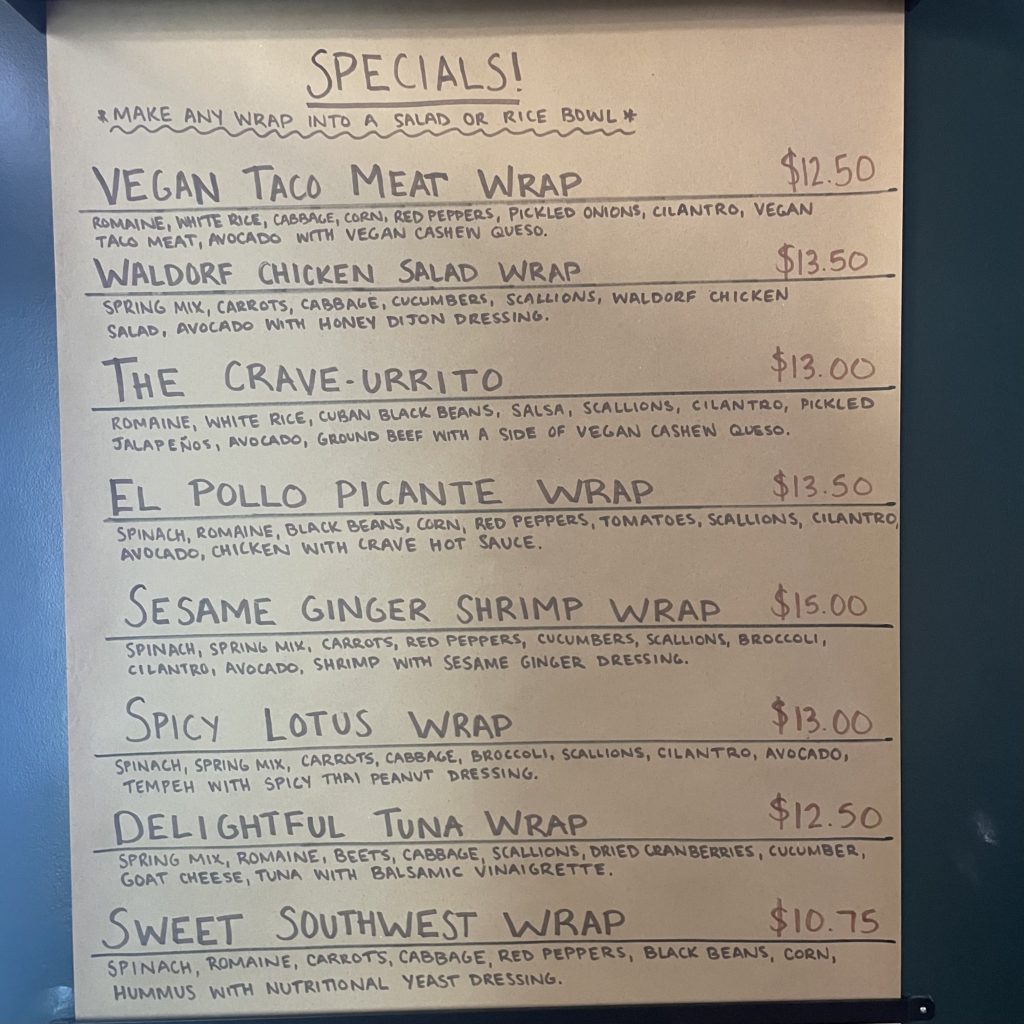 SPECIALS!
*MAKE ANY WRAP INTO A SALAD OR RICE BOWL*
VEGAN TACO MEAT WRAP $12.50
ROMAINE, WHITE RICE, CABBAGE, CORN, RED PEPPERS, PICKLED ONIONS, CILANTRO, VEGAN
TACO MEAT, AVOCADO WITH VEGAN CASHEW QUESO.
WALDORF CHICKEN SALAD WRAP $13.50
SPRING MIX, CARROTS, CABBAGE, CUCUMBERS, SCALLIONS, WALDORF CHICKEN
SALAD, AVOCADO WITH HONEY DIJON DRESSING.
THE CRAVE-URRITO $13.00
ROMAINE, WHITE RICE, CUBAN BLACK BEANS, SALSA, SCALLIONS, CILANTRO, PICKLED
JALAPEÑOS, AVOCADO, GROUND BEEF WITH A SIDE OF VEGAN CASHEW QUESO.
EL POLLO PICANTE WRAP $13.50
SPINACH, ROMAINE, BLACK BEANS, CORN, RED PEPPERS, TOMATOES, SCALLIONS, CILANTRO,
AVOCADO, CHICKEN WITH CRAVE HOT SAUCE.
SESAME GINGER SHRIMP WRAP $15.00
SPINACH, SPRING MIX, CARROTS, RED PEPPERS, CUCUMBERS, SCALLIONS, BROCCOLI,
CILANTRO, AVOCADO, SHRIMP WITH SESAME GINGER DRESSING.
SPICY LOTUS WRAP $13.00
SPINACH, SPRING MIX, CARROTS, CABBAGE, BROCCOLI, SCALLIONS, CILANTRO, AVOCADO,
TEMPEH WITH SPICY THAI PEANUT DRESSING.
DELIGHTFUL TUNA WRAP $12.50
SPRING MIX, ROMAINE, BEETS, CABBAGE, SCALLIONS, DRIED CRANBERRIES, CUCUMBER,
GOAT CHEESE, TUNA WITH BALSAMIC VINAIGRETTE.
SWEET SOUTHWEST WRAP $10.75
SPINACH, ROMAINE, CARROTS, CABBAGE, RED PEPPERS, BLACK BEANS, CORN,
HUMMUS WITH NUTRITIONAL YEAST DRESSING.